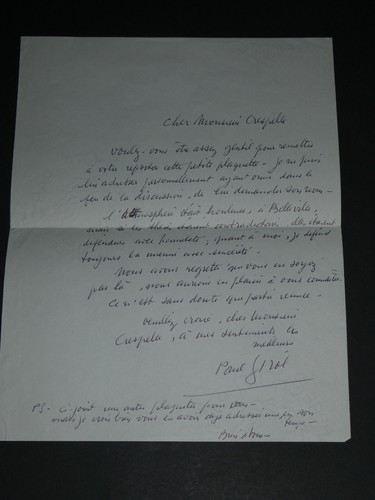 Cher Monsieur Crespelle
Voulez-vous être assez gentil pour remettre
à votre reporter cette petite plaquette - je ne puis
lui adresser personnellement ayant omis dans le
feu de la discussion, de lui demander son nom -
l'atmosphère était houleuse, à Belleville,
mais si les thèses étaient contradictoires, elles étaient
défendues avec honnêteté; quant à moi, je défends
toujours la mienne avec sincérité -
Nous avons regretté que vous ne soyez
pas là, nous aurions eu plaisir à vous connaître.
Ce n'est sans doute que partie remise -
Veuillez croire, cher Monsieur
Crespelle, à mes sentiments les
meilleurs
Paul
PS - ci joint une autre plaquette pour vous -
mais je crois bien vous en avoir déjà adressé une en son
temps -